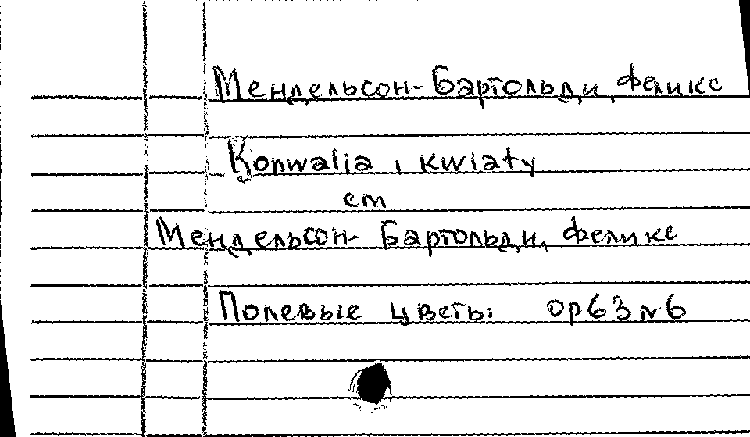 Мендельсон-Бартольди, Феликс
Konwalia i kwiaty
см
Мендельсон-Бартольди, Феликс
Полевые цветы op63 N6